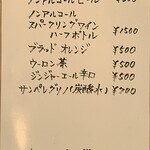 ノンアルコールビール
ノンアルコール
スパークリングワイン
ハーフボトル ¥1500
ブラッド オレンジ ¥500
ウーロン茶 ¥500
ジンジャーエール辛口 ¥500
サンペレグリノ(炭酸水) ¥700